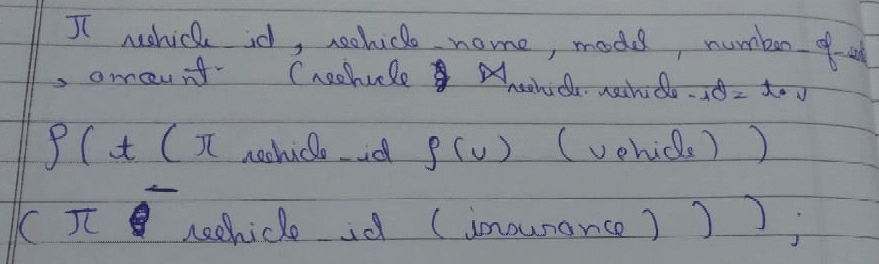 π vehicle_id, vehicle_name, model, number_of_
, amount (vehicle ⋈ vehicle.vehicle_id = t.v
ρ(t (π vehicle_id ρ(v) (vehicle))
–
(π vehicle_id (insurance)));